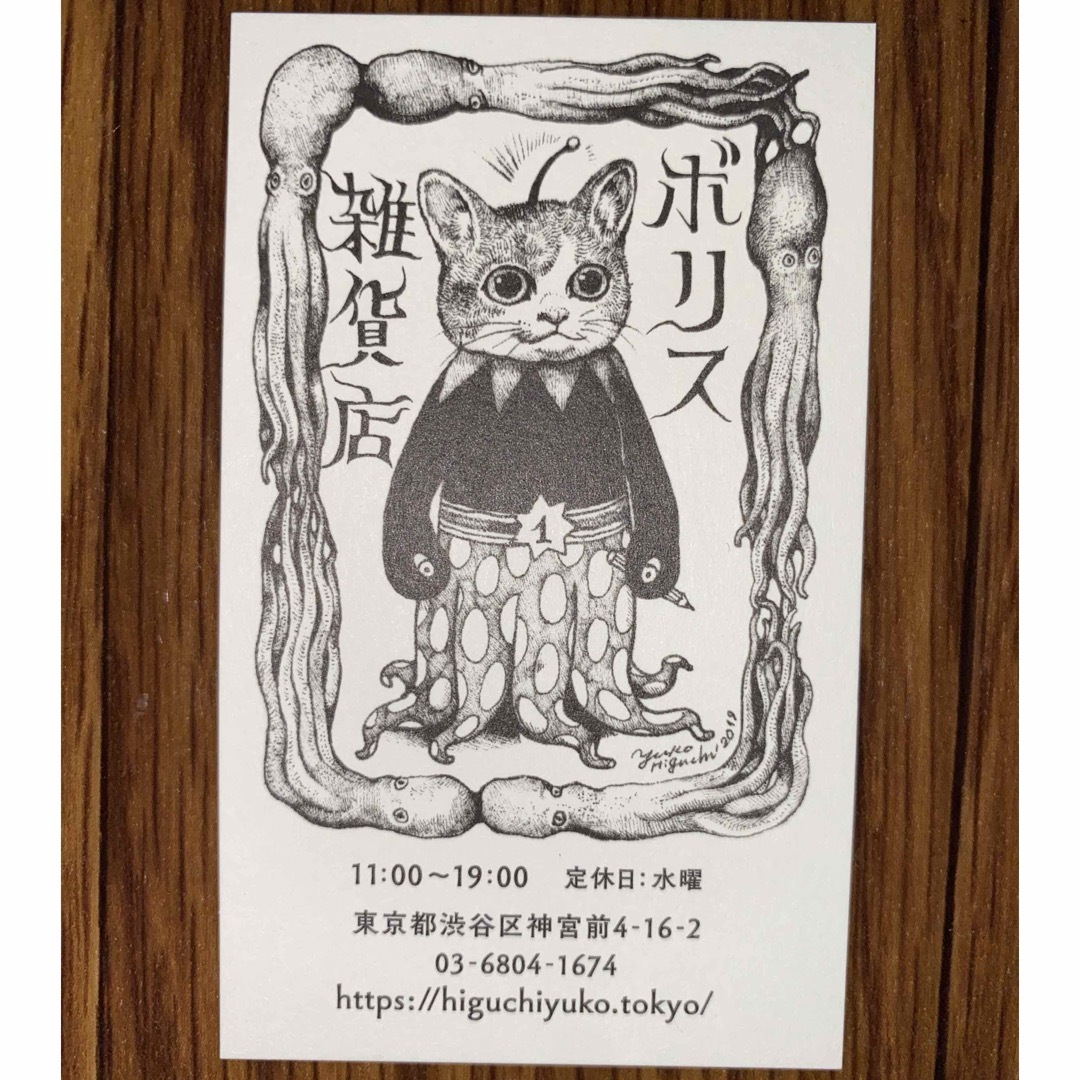 ボリス
雑貨店
1
Yuko
Higuchi '2019
11:00～19:00 定休日：水曜
東京都渋谷区神宮前4-16-2
03-6804-1674
https://higuchiyuko.tokyo/